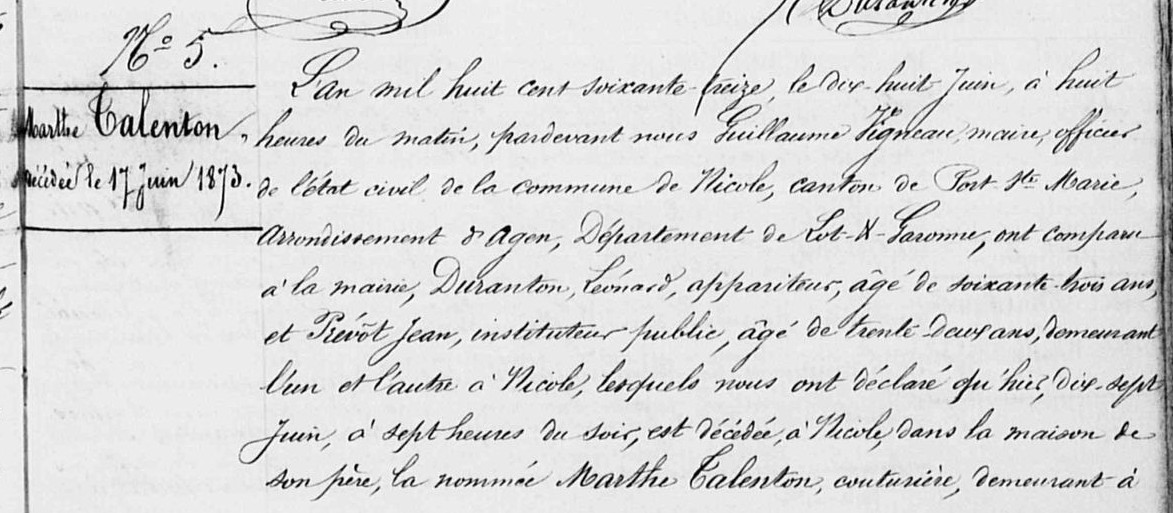 Nº 5.
Marthe Talenton,
décédée le 17 juin 1873.
L'an mil huit cent soixante-treize le dix huit Juin, à huit
heures du matin, pardevant nous Guillaume Vigneau, maire, officier
de l'état civil de la commune de Nicole, canton de Port-Ste Marie,
Arrondissement d'Agen, Département de Lot-&-Garonne, ont comparu
à la mairie, Duranton, Léonard, appariteur, âgé de soixante-trois ans,
et Prévôt Jean, instituteur public, âgé de trente deux ans, demeurant
l'un et l'autre à Nicole, lesquels nous ont déclaré qu'hier, dix-sept
Juin, à sept heures du soir, est décédée, à Nicole, dans la maison de
son père, la nommée Marthe Talenton, couturière, demeurant à